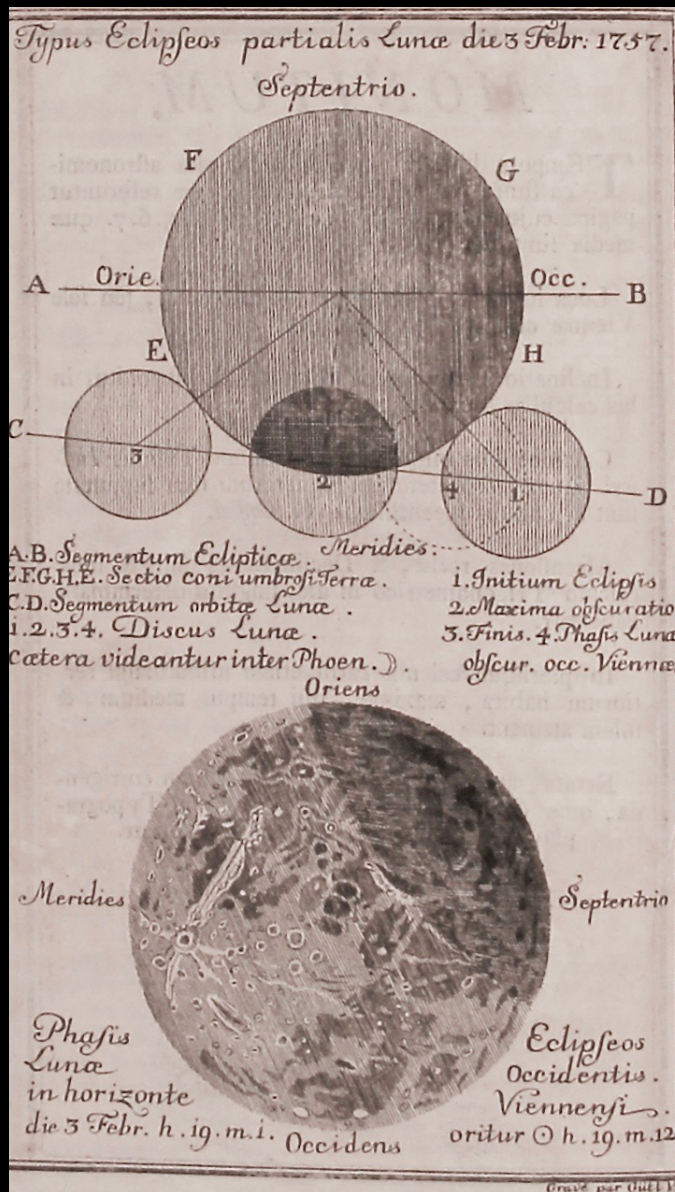 Typus Eclipſeos partialis Lunæ die 3 Febr: 1757.
Septentrio.
F
G
A
Orie.
Occ.
B
E
H
C
3
2
4
1.
D
Meridies.
A.B. Segmentum Eclipticæ.
E.F.G.H.E. Sectio coni umbroſi Terræ.
C.D. Segmentum orbitæ Lunæ.
1.2.3.4. Discus Lunæ.
Cætera videantur inter Phoen. ☽.
1. Initium Eclipſis
2. Maxima obſcuratio
3. Finis. 4. Phaſis Lunæ
obſcur. occ. Viennæ
Oriens
Meridies
Septentrio
Phaſis
Lunæ
in horizonte
die 3 Febr. h. 19. m. 1.
Occidens
Eclipſeos
Occidentis.
Viennenſi.
oritur ☉ h. 19. m. 12
Gravé par